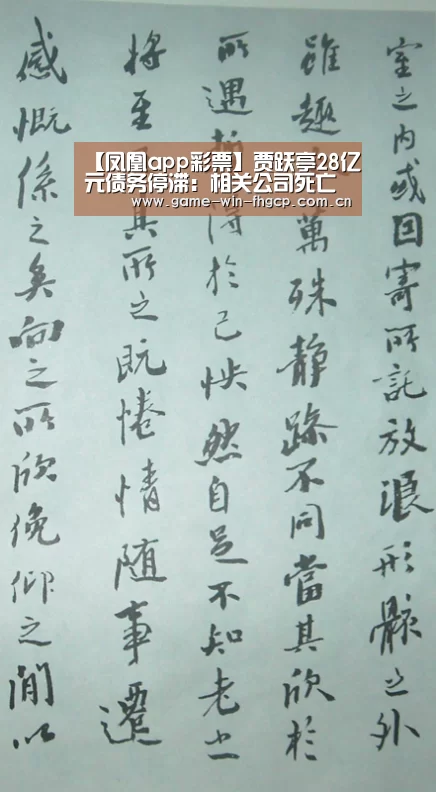 【凤凰app彩票】贾跃亭28亿
元债务停滞：相关公司死亡
www.game-win-fhgcp.com.cn
室之内或因寄所託放浪形骸之外
雖趣萬殊静躁不同當其欣於
所遇得於己怏然自足不知老之
將至其所之既惓情随事遷
感慨係之矣向之所欣俛仰之閒以